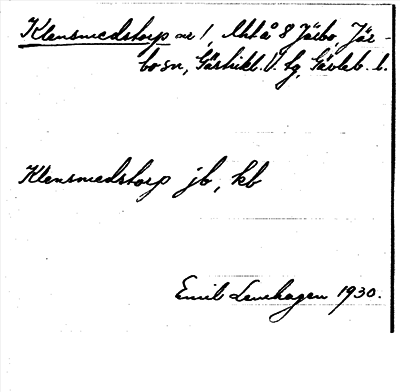 Klensmedstorp nr 1, Utå 8 Järbo, Jär-
bo sn, Gästrikl. V. hg, Gävleb. l.
Klensmedstorp jb, kb
Emil Lenehagen 1930.